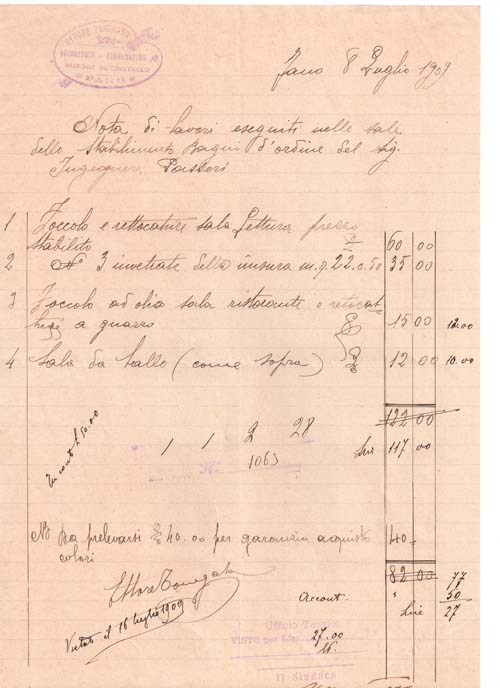 Fano 8 Luglio 1909
Nota di lavori eseguiti nelle sale
dello Stabilimento Bagni d'ordine del sig.
Ingegnere Passeri
1 Zoccolo e rettocature sala Lettura prezzo
stabilito 60 00
2 N° 3 invetriate della misura m.q. 22.c.50 35 00
3 Zoccolo ad olio sala ristorante e
a guazzo 15 00 12.00
4 Sala da ballo (come sopra) 12 00 10.00
122 00
In conto £ 50.00
1 1 2 28
1063
Lire 117 00
NB Da prelevarsi £ 40.00 per garanzia acquisto 40 -
colori
82 00 77
50
Lire 27
Ettore
Account.
Vistato il 16 luglio 1909
Ufficio
VISTO, per Lire 27.00
Il Sindaco